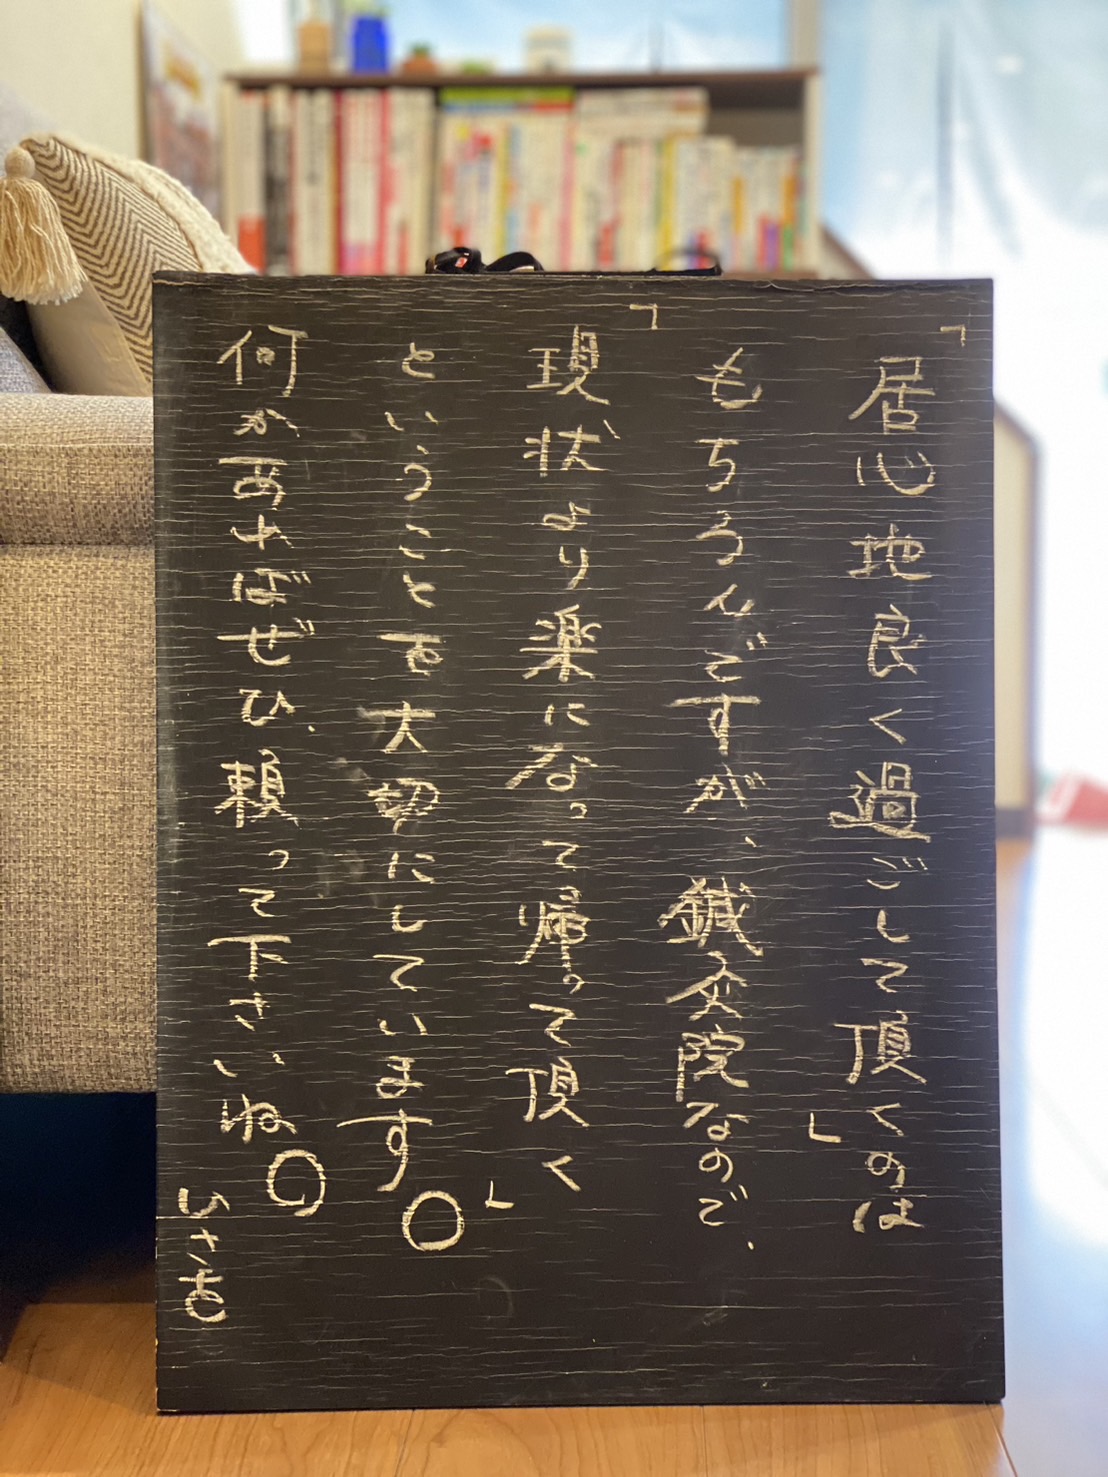 「居心地良く過ごして頂く」のは
もちろんですが、鍼灸院なので、
「現状より楽になって帰って頂く」
ということを大切にしています。
何かあればぜひ、頼って下さいね。